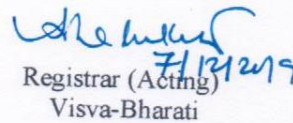 7/12/2019
Registrar (Acting)
Visva-Bharati